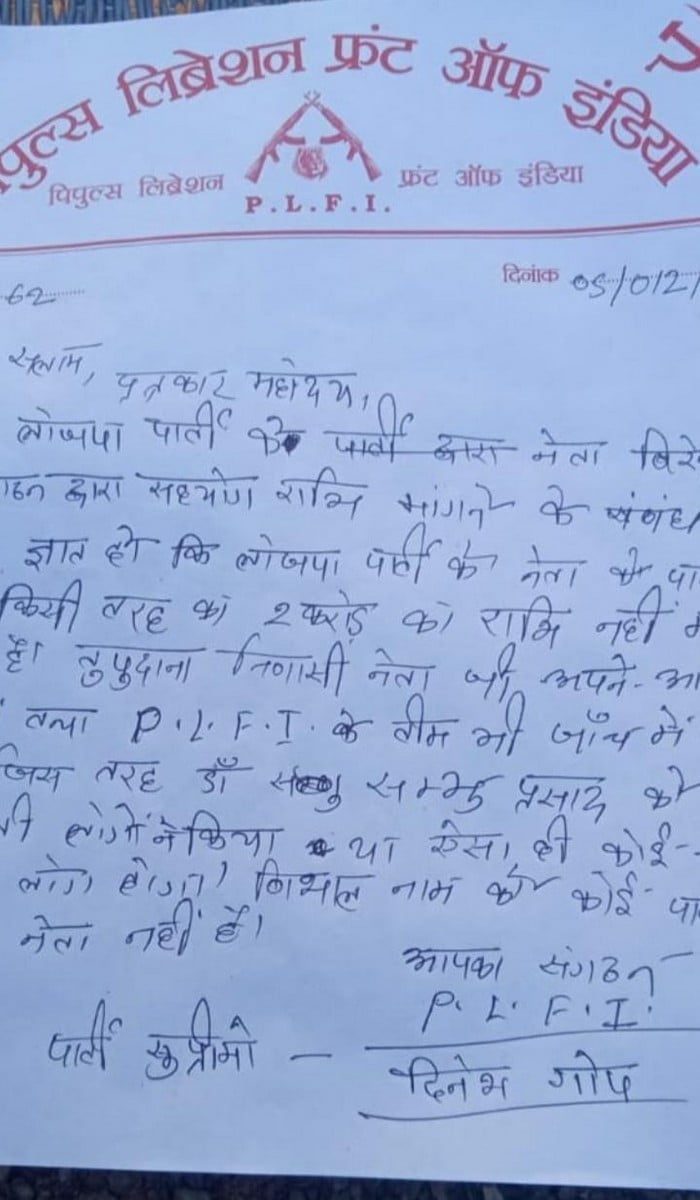 पिपुल्स लिब्रेशन फ्रंट ऑफ इंडिया
पिपुल्स लिब्रेशन फ्रंट ऑफ इंडिया
P.L.F.I.
62
दिनांक 05/012/
सलाम, पत्रकार महोदय,
लोजपा पार्ती के पार्ती द्वारा नेता
द्वारा सहयोग राशि मांगने के संबंध
ज्ञात हो कि लोजपा पार्टी के नेता के पा
किसी तरह का 2 करोड़ का राशि नहीं
है। तुपुदाना निवासी नेता जी अपने-आ
तथा P.L.F.I. के टीम भी जाँच में
जिस तरह डाँ सम्भु प्रसाद को
लोगों ने किया था ऐसा ही कोई-
लोग होगा। विशाल नाम के कोई पा
नेता नहीं है।
आपका संगठन
P.L.F.I.
पार्टी सुप्रीमो – दिनेश गोप